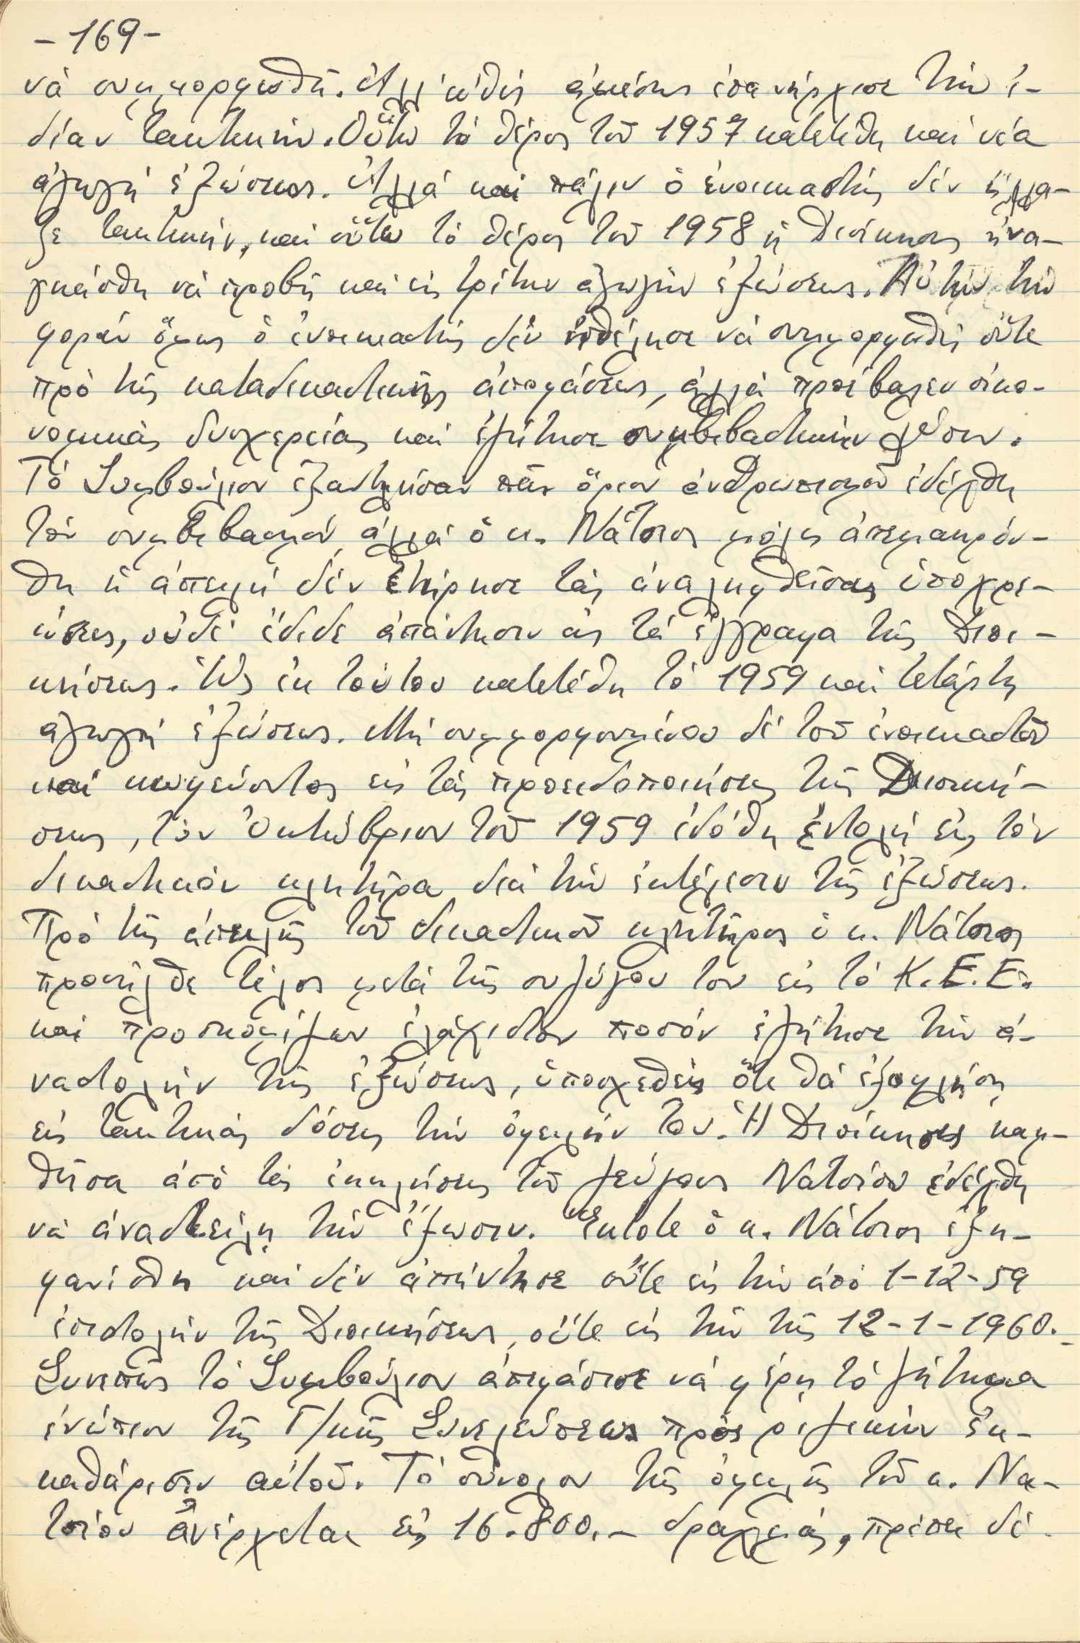 -169-
νὰ συμμορφωθῇ. Ἀλλ' εὐθὺς ἀμέσως ἐπανήρχισε τὴν ἰ-
δίαν τακτικήν. Οὕτω τὸ θέρος τοῦ 1957 κατετέθη καὶ νέα
ἀγωγὴ ἐξώσεως. Ἀλλὰ καὶ πάλιν ὁ ἐνοικιαστὴς δὲν ἤλλα-
ξε τακτικήν, καὶ οὕτω τὸ θέρος τοῦ 1958 ἡ Διοίκησις ἠνα-
γκάσθη νὰ προβῇ καὶ εἰς τρίτην ἀγωγὴν ἐξώσεως. Αὐτὴν τὴν
φορὰν ὅμως ὁ ἐνοικιαστὴς δὲν ἠθέλησε νὰ συμμορφωθῇ οὔτε
πρὸ τῆς καταδικαστικῆς ἀποφάσεως, ἀλλὰ προέβαλεν οἰκο-
νομικὰς δυσχερείας καὶ ἐζήτησε συμβιβαστικὴν λύσιν.
Τὸ Συμβούλιον ἐξαντλῆσαν πᾶν ὅριον ἀνθρωπισμοῦ ἐδέχθη
τὸν συμβιβασμόν, ἀλλὰ ὁ κ. Νάτσιος μόλις ἀπεμακρύν-
θη ἡ ἀπειλὴ δὲν ἐτήρησε τὰς ἀναληφθείσας ὑποχρε-
ώσεις, οὐδὲ ἔδιδε ἀπάντησιν εἰς τὰ ἔγγραφα τῆς Διοι-
κήσεως. Ὡς ἐκ τούτου κατετέθη τὸ 1959 καὶ τετάρτη
ἀγωγὴ ἐξώσεως. Μὴ συμμορφουμένου δὲ τοῦ ἐνοικιαστοῦ
καὶ κωφεύοντος εἰς τὰς προειδοποιήσεις τῆς Διοική-
σεως, τὸν Ὀκτώβριον τοῦ 1959 ἐδόθη ἐντολὴ εἰς τὸν
δικαστικὸν κλητῆρα διὰ τὴν ἐκτέλεσιν τῆς ἐξώσεως.
Πρὸ τῆς ἀπειλῆς τοῦ δικαστικοῦ κλητῆρος ὁ κ. Νάτσιος
προσῆλθε τέλος μετὰ τῆς συζύγου του εἰς τὸ Κ.Ε.Ε.
καὶ προσκομίζων ἐλάχιστον ποσὸν ἐζήτησε τὴν ἀ-
ναστολὴν τῆς ἐξώσεως, ὑποσχεθεὶς ὅτι θὰ ἐξοφλήσῃ
εἰς τακτικὰς δόσεις τὴν ὀφειλήν του. Ἡ Διοίκησις καμ-
θεῖσα ἀπὸ τὰς ἐκκλήσεις τοῦ ζεύγους Νατσίου ἐδέχθη
νὰ ἀναστείλῃ τὴν ἔξωσιν. Ἔκτοτε ὁ κ. Νάτσιος ἐξη-
φανίσθη καὶ δὲν ἀπήντησε οὔτε εἰς τὴν ἀπὸ 1-12-59
ἐπιστολὴν τῆς Διοικήσεως, οὔτε εἰς τὴν τῆς 12-1-1960.
Συνεπῶς τὸ Συμβούλιον ἀπεφάσισε νὰ φέρῃ τὸ ζήτημα
ἐνώπιον τῆς Γ/κῆς Συνελεύσεως πρὸς ριζικὴν ἐκ-
καθάρισιν αὐτοῦ. Τὸ σύνολον τῆς ὀφειλῆς τοῦ κ. Να-
τσίου ἀνέρχεται εἰς 16.800.- δραχμάς, πρέπει δὲ